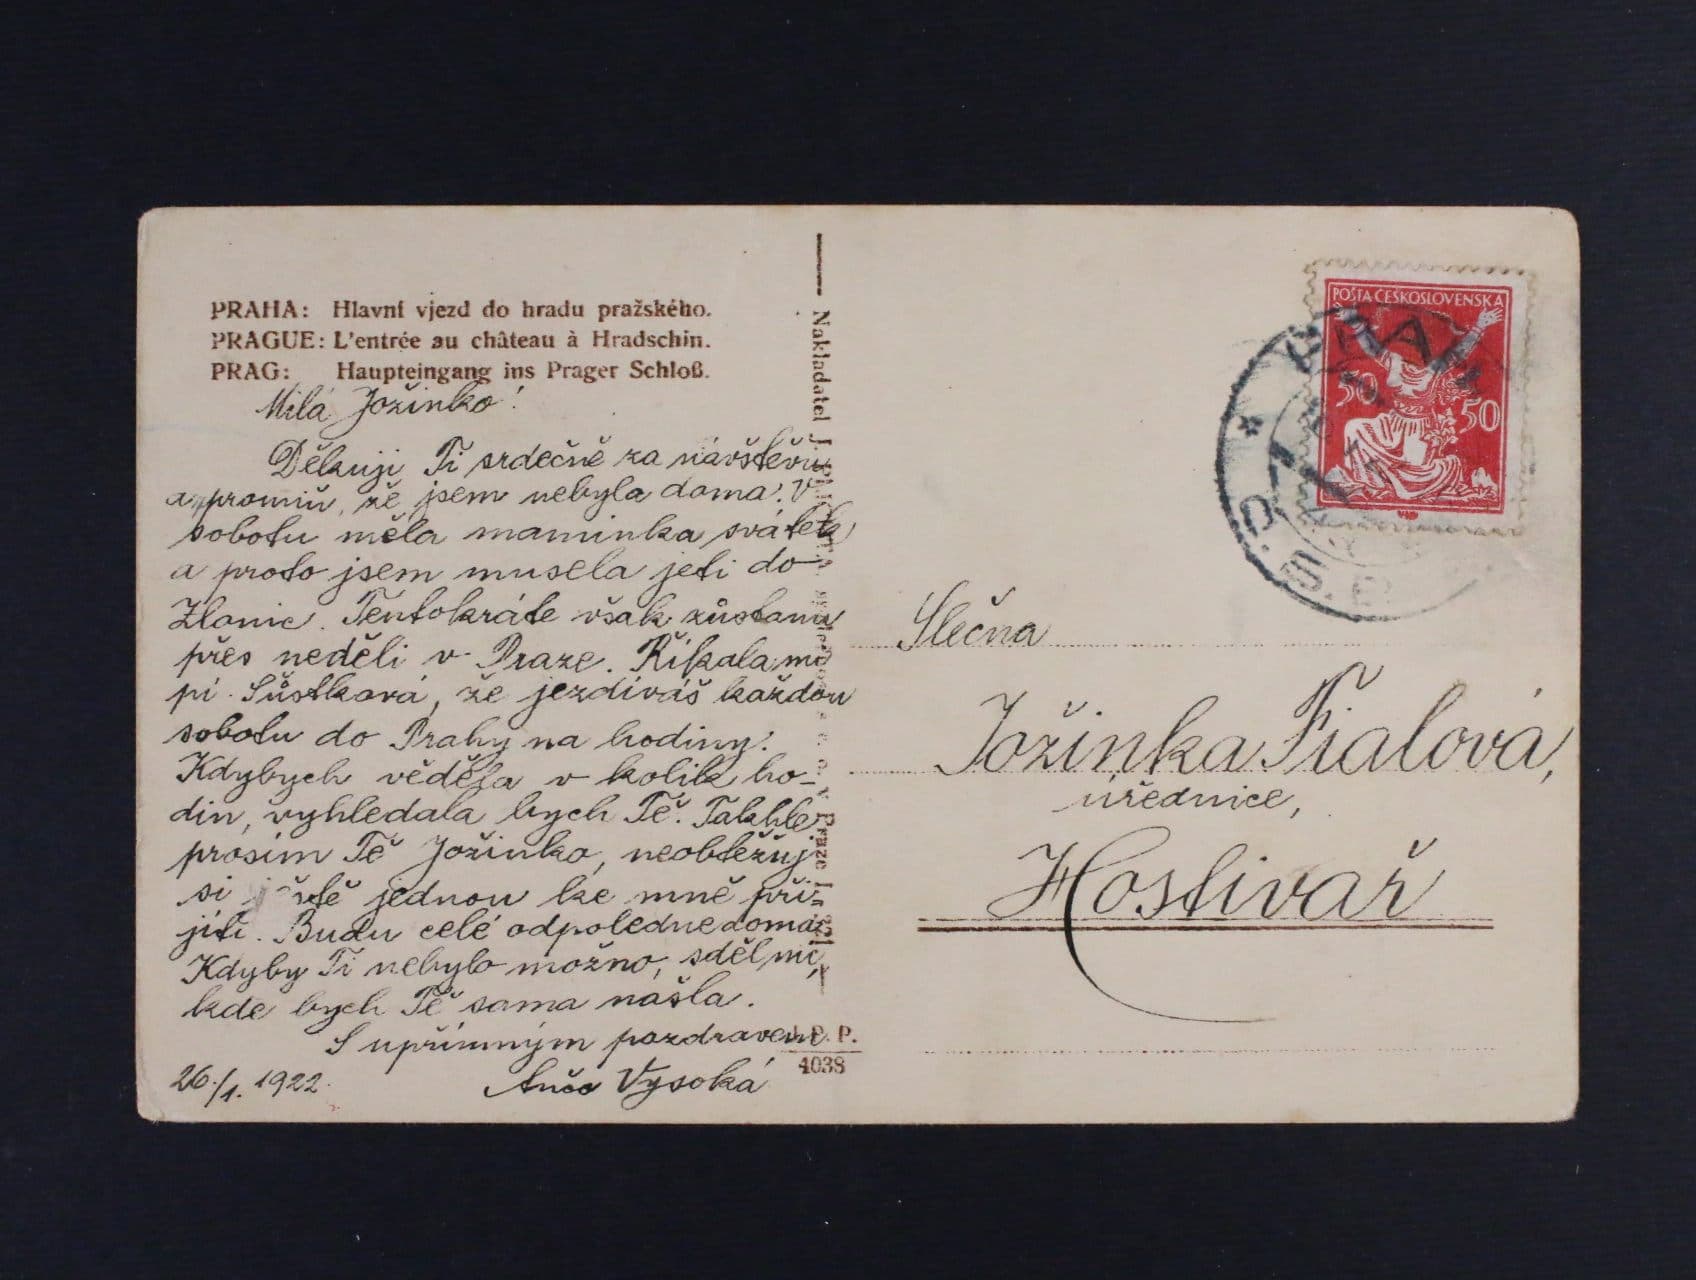 PRAHA: Hlavní vjezd do hradu pražského.
PRAGUE: L'entrée au château à Hradschin.
PRAG: Haupteingang ins Prager Schloß.
Milá Jožinko!
Děkuji Ti srdečně za návštěvu
a promiň, že jsem nebyla doma. V
sobotu měla maminka svátek
a proto jsem musela jeti do
Zlonic. Tentokráte však zůstanu
přes neděli v Praze. Říkala mi
pí. Šůstková, že jezdíváš každou
sobotu do Prahy na hodiny.
Kdybych věděla v kolik ho-
din, vyhledala bych Tě. Takhle
prosím Tě Jožinko, neobtěžuj
si ještě jednou ke mně při-
jíti. Budu celé odpoledne doma.
Kdyby Ti nebylo možno, sděl mi,
kde bych Tě sama našla.
S upřímným pozdravem
26./1. 1922. Anča Vysoká
Nakladatel J.
Praze
P. P.
4038
POŠTA ČESKOSLOVENSKÁ
50 50
PRAHA
Č.S.P.
Slečna
Jožinka Fialová,
úřednice,
Hostivař